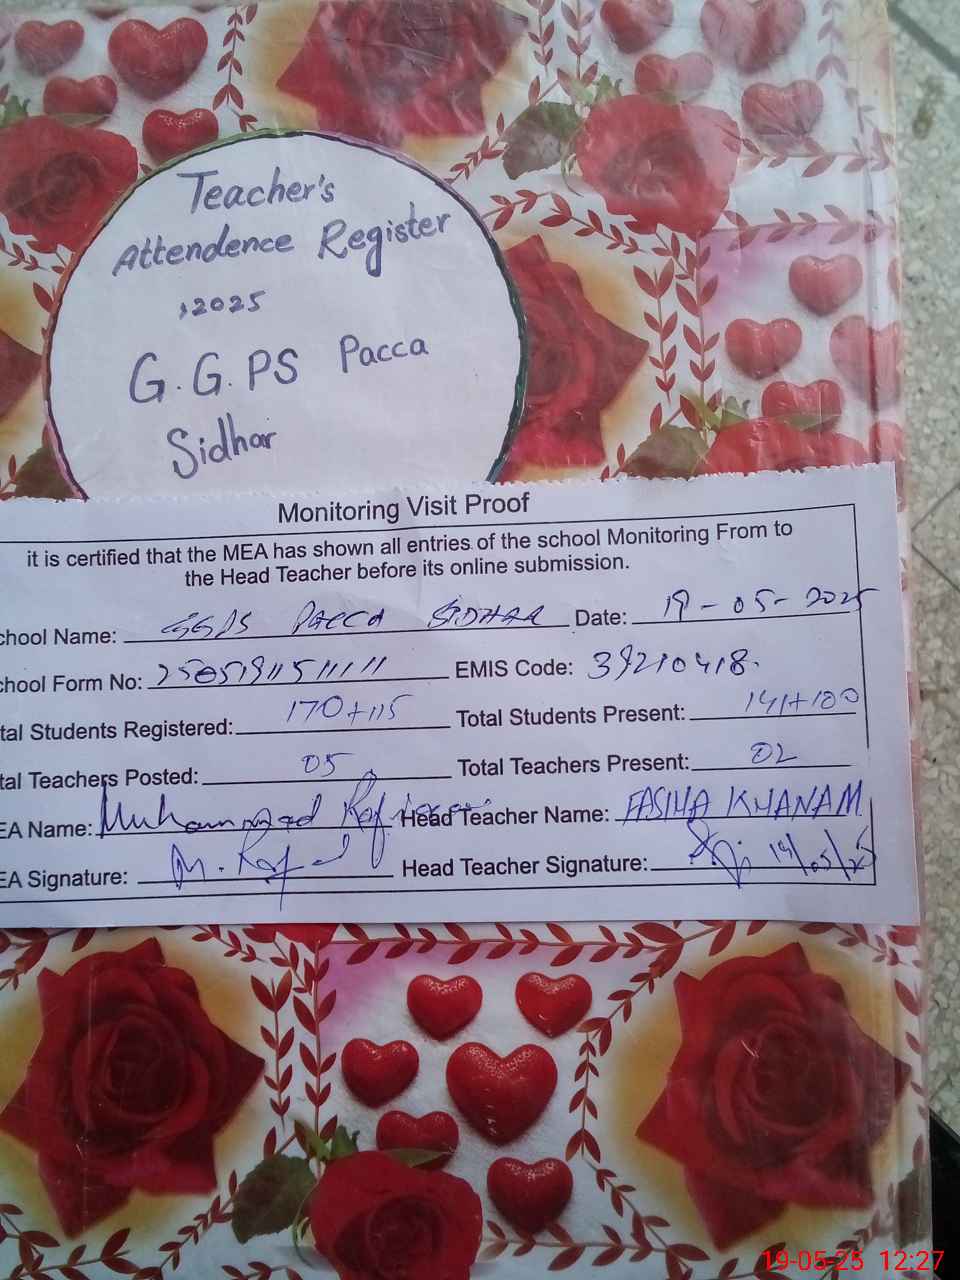 Teacher's
Attendence Register
,2025
G.G.PS Pacca
Sidhar
Monitoring Visit Proof
it is certified that the MEA has shown all entries of the school Monitoring From to
the Head Teacher before its online submission.
chool Name: GGPS PACCA SIDHAR Date: 19-05-2025
chool Form No: EMIS Code: 39210418.
tal Students Registered: 170+115 Total Students Present: 141+100
tal Teachers Posted: 05 Total Teachers Present: 02
EA Name: Muhammad Head Teacher Name: FASIHA KHANAM
EA Signature: Head Teacher Signature: 19/05/25
19-05-25 12:27